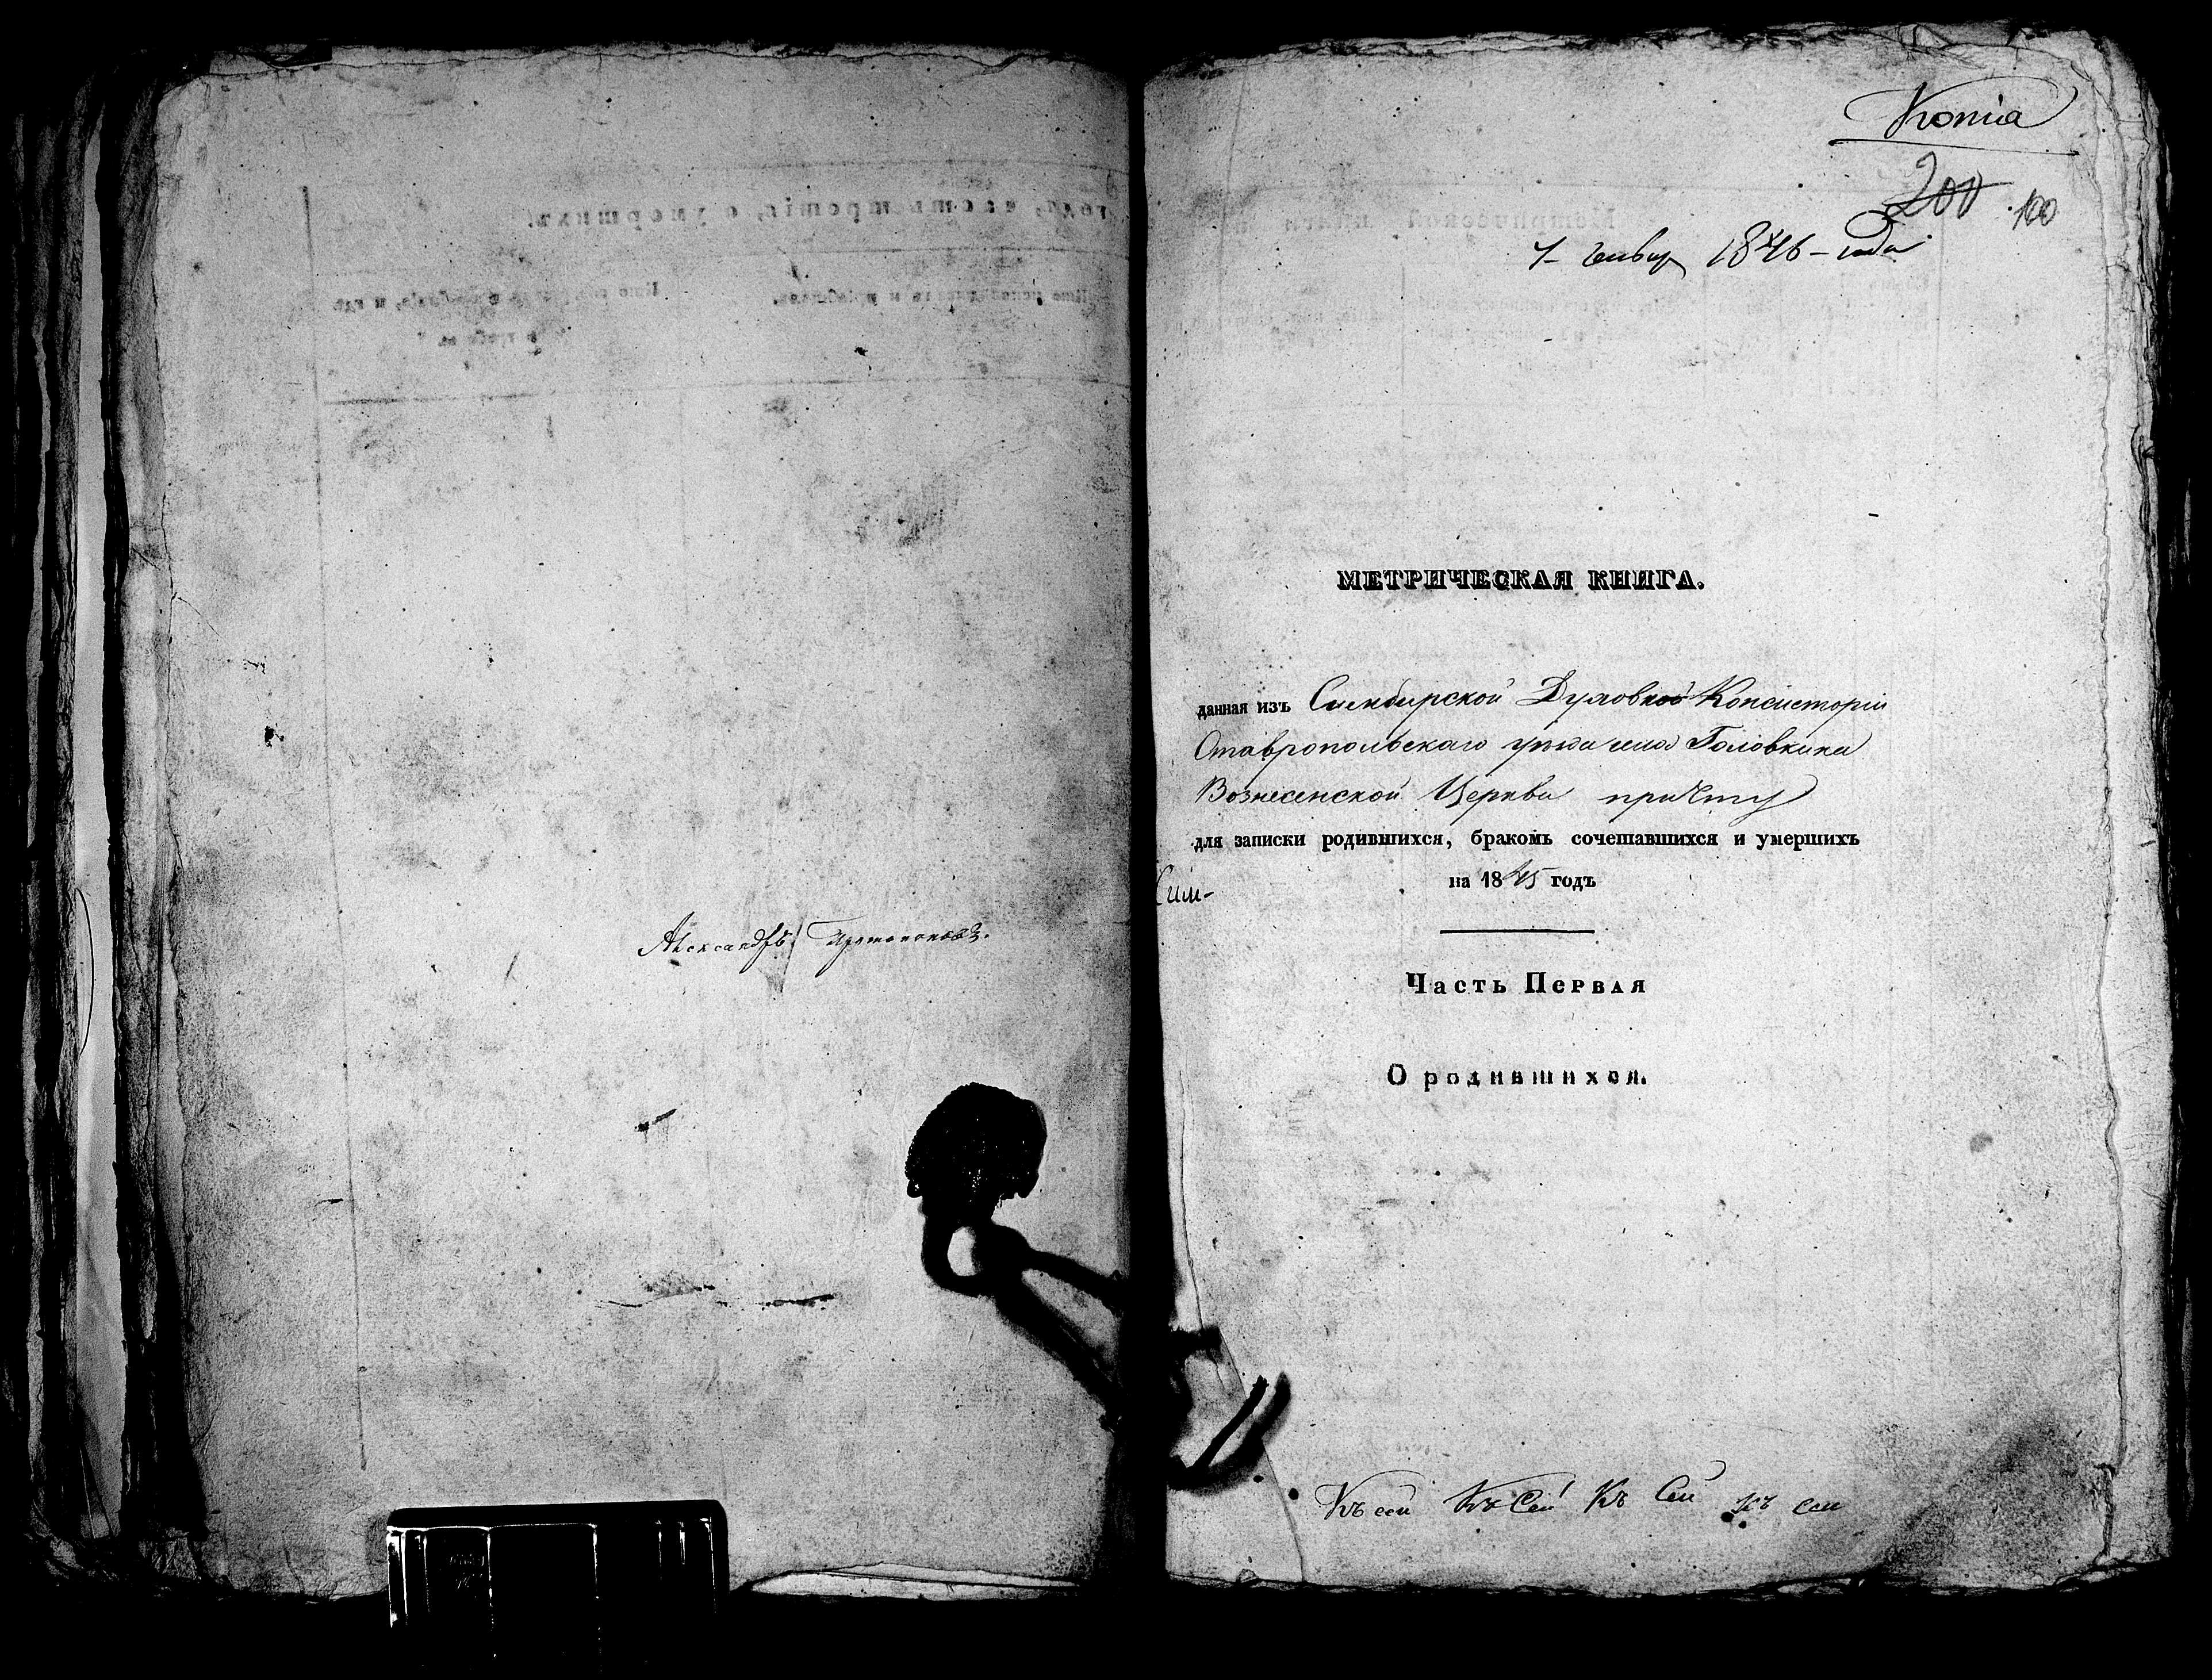 Александръ Протопоповъ.
Копія
200 100
7 генвар 1846 - года
МЕТРИЧЕСКАЯ КНИГА.
данная изъ Симбирской Духовной Консисторіи
Ставропольскаго уѣзда села Головкина
Вознесенской Церкви причту
для записки родившихся, бракомъ сочетавшихся и умершихъ
Сим-
на 1845 годъ
Часть Первая
О родившихся.
Къ сей Къ Сей Къ Сей къ сей